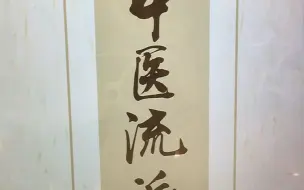 中医流派